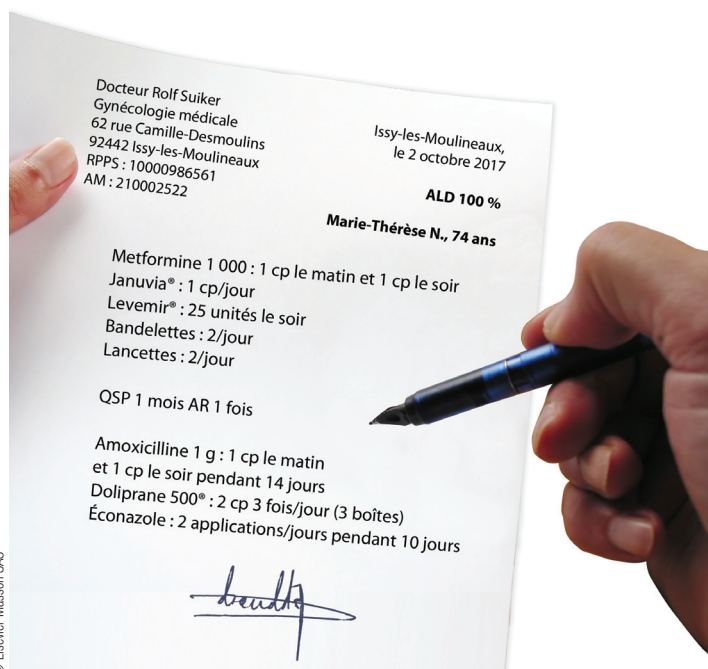 Docteur Rolf Suiker
Gynécologie médicale
62 rue Camille-Desmoulins
92442 Issy-les-Moulineaux
RPPS : 10000986561
AM : 210002522
Issy-les-Moulineaux,
le 2 octobre 2017
ALD 100 %
Marie-Thérèse N., 74 ans
Metformine 1 000 : 1 cp le matin et 1 cp le soir
Januvia® : 1 cp/jour
Levemir® : 25 unités le soir
Bandelettes : 2/jour
Lancettes : 2/jour
QSP 1 mois AR 1 fois
Amoxicilline 1 g : 1 cp le matin
et 1 cp le soir pendant 14 jours
Doliprane 500® : 2 cp 3 fois/jour (3 boîtes)
Éconazole : 2 applications/jours pendant 10 jours
Elsevier Masson SAS